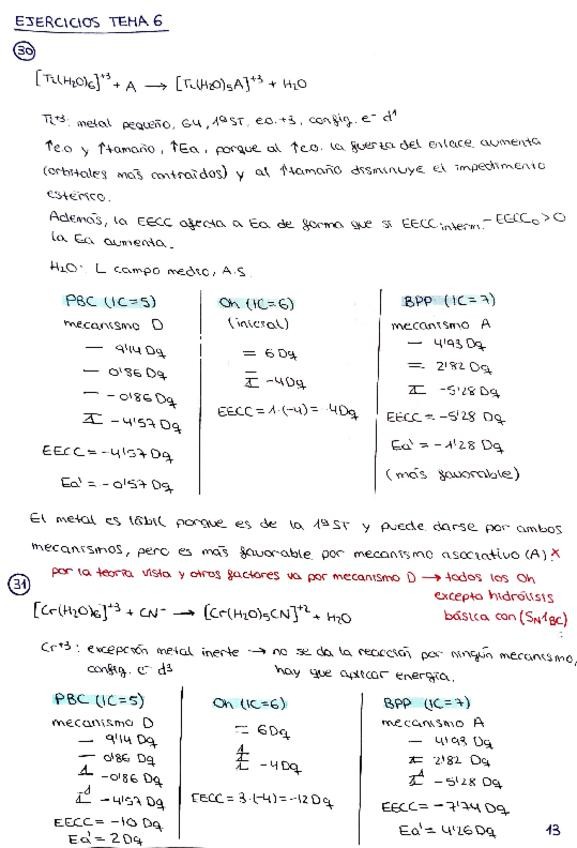 EJERCICIOS TEMA 6
30
[Ti(H₂O)₆]⁺³ + A → [Ti(H₂O)₅A]⁺³ + H₂O
Ti⁺³: metal pequeño, G4, 1ª ST, e.o. +3, config. e⁻ d¹
↑e.o y ↑tamaño, ↑Ea, porque al ↑e.o. la fuerza del enlace aumenta
(orbitales más contraídos) y al ↑tamaño disminuye el impedimento
estérico.
Además, la EECC afecta a Ea de forma que si EECC interm. - EECC₀ > 0
la Ea aumenta.
H₂O: L campo medio, A.S.
PBC (IC=5)
mecanismo D
9'14 Dq
0'86 Dq
-0'86 Dq
-4'57 Dq
EECC = -4'57 Dq
Ea' = -0'57 Dq
Oh (IC=6)
(inicial)
6 Dq
-4 Dq
EECC = 1·(-4) = -4Dq
BPP (IC=7)
mecanismo A
4'93 Dq
2'82 Dq
-5'28 Dq
EECC = -5'28 Dq
Ea' = -1'28 Dq
(más favorable)
El metal es lábil porque es de la 1ª ST y puede darse por ambos
mecanismos, pero es más favorable por mecanismo asociativo (A).*
* por la teoría vista y otros factores va por mecanismo D → todos los Oh
excepto hidrólisis
básica con (SN1BC)
31
[Cr(H₂O)₆]⁺³ + CN⁻ → [Cr(H₂O)₅CN]⁺² + H₂O
Cr⁺³: excepción metal inerte → no se da la reacción por ningún mecanismo,
config. e⁻ d³ hay que aplicar energía.
PBC (IC=5)
mecanismo D
9'14 Dq
0'86 Dq
-0'86 Dq
-4'57 Dq
EECC = -10 Dq
Ea' = 2 Dq
Oh (IC=6)
6 Dq
-4 Dq
EECC = 3·(-4) = -12 Dq
BPP (IC=7)
mecanismo A
4'93 Dq
2'82 Dq
-5'28 Dq
EECC = -7'74 Dq
Ea' = 4'26 Dq
13